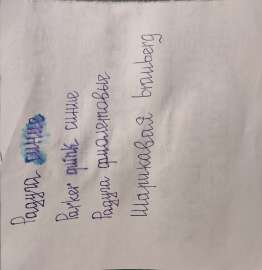 Радуга синие
Parker quink синие
Радуга фиолетовые
Шариковая brauberg